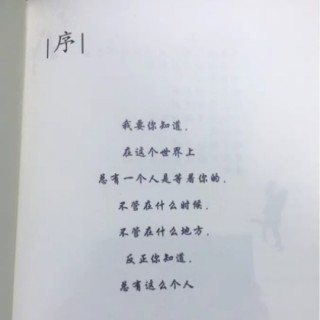 |序|
我要你知道，
在这个世界上
总有一个人是等着你的，
不管在什么时候，
不管在什么地方，
反正你知道，
总有这么个人